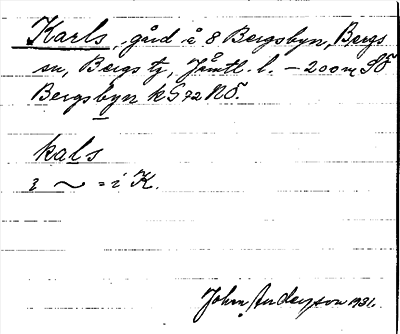 Karls, gård å 8 Bergsbyn, Bergs
sn, Bergs tg, Jämtl. l. – 200 m SÖ
Bergsbyn kG 72 NÖ.
kals
i ~ = i K.
John Anderson 1931.